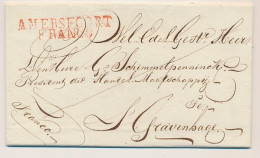 AMERSFOORT
FRANCO
Wel Edel Gestr. Heer
Den Heere G. Schimmelpenninck
President der Handel Maatschappij
Te
Franco
s'Gravenhage